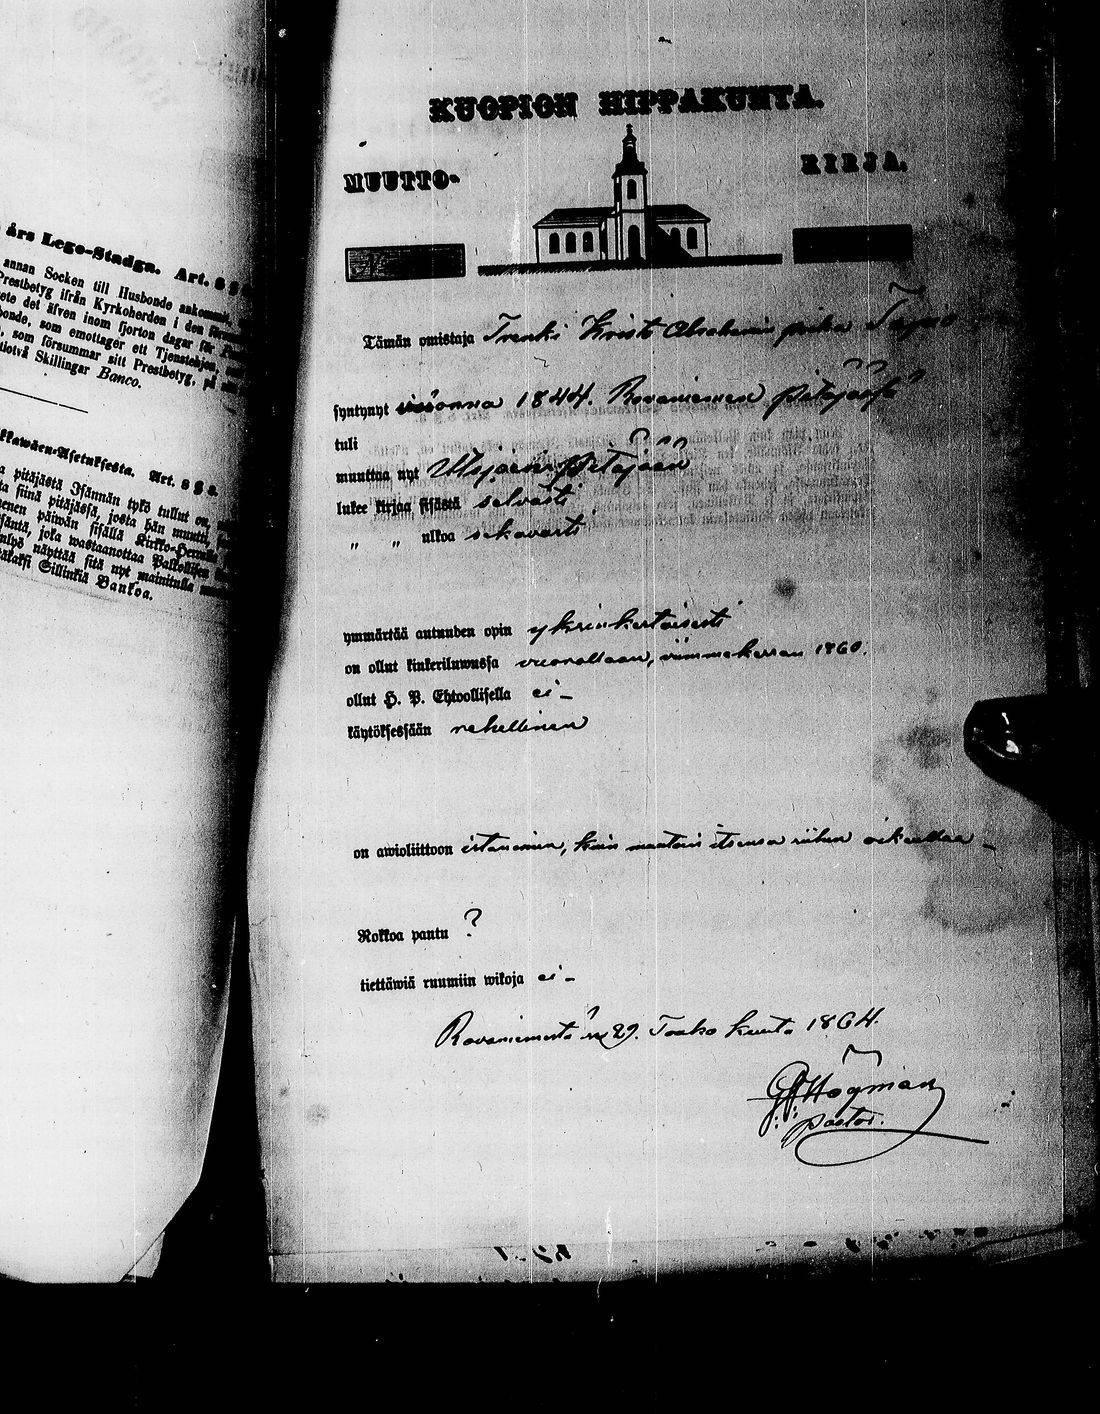 års Lego-Stadga. Art. 8 §
annan Socken till Husbonde ankommit,
Prestbetyg ifrån Kyrkoherden i den
det äfven inom fjorton dagar för
som emottager ett Tjenstehjon,
som försummar sitt Prestbetyg, på
Skillingar Banco.
Art. 8 §
pitäjästä Isännän tykö tullut on,
siinä pitäjässä, josta hän muutti,
päiwän sisällä
joka wastaanottaa
näyttää sitä nyt mainitulla
Sillinkiä Bankoa.
KUOPION HIPPAKUNTA.
MUUTTO- KIRJA.
Tämän omistaja Trenki Abrahamin poika
syntynyt wuonna 1844. Rovaniemen pitäjässä
tuli
muuttaa nyt Utsjoen pitäjään
lukee kirjaa sisästä selvästi
" " ulkoa sekavasti
ymmärtää autuuden opin yksinkertaisesti
on ollut kinkeriluwussa vuorollaan, viimmekerran 1860.
ollut H. P. Ehtoollisella ei –
käytöksessään rehellinen
on awioliittoon estämein, kuin muutoin itsensä siihen oikeuttaa –
Rokkoa pantu ?
tiettäwiä ruumiin wikoja ei –
Rovaniemestä 29. kuuta 1864.
Högman
pastor.